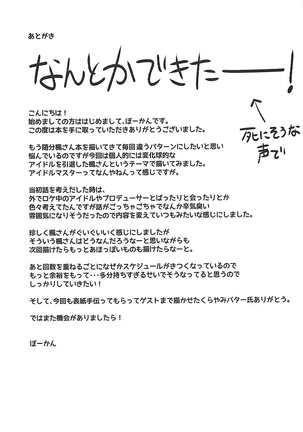 あとがき
なんとかできたーー！
死にそうな
声で
こんにちは！
始めましての方ははじめまして、ぼーかんです。
この度は本を手に取っていただきありがとうございました。
もう随分楓さん本を描いてきて毎回違うパターンにしたいと思い
悩んでいるのですが今回は個人的には変化球的な
アイドルを引退した楓さんというテーマで描いてみました。
アイドルマスターってなんやねんって感じですが。
当初話を考えだした時は、
外でロケ中のアイドルやプロデューサーとばったりと会ったりとか
色々考えてたんですが話がごっちゃごちゃでなんか辛気臭い
雰囲気になりそうだったので内容を変えていつもみたいな感じにしました。
珍しく楓さんがぐいぐいいく感じにしましたが
そういう楓さんはどうなんだろうなーと思いながらも
次回描けたらもっとあほっぽいものも描けたらなーと。
あと回数を重ねるごとになぜかスケジュールがきつくなっているので
もっと余裕をもって・・・多分持ちすぎるせいでそうなってると思うので
しっかりしていきたい！
そして、今回も表紙手伝ってもらってゲストまで描かせたくらやみバター氏ありがとう。
ではまた機会がありましたら！
ぼーかん